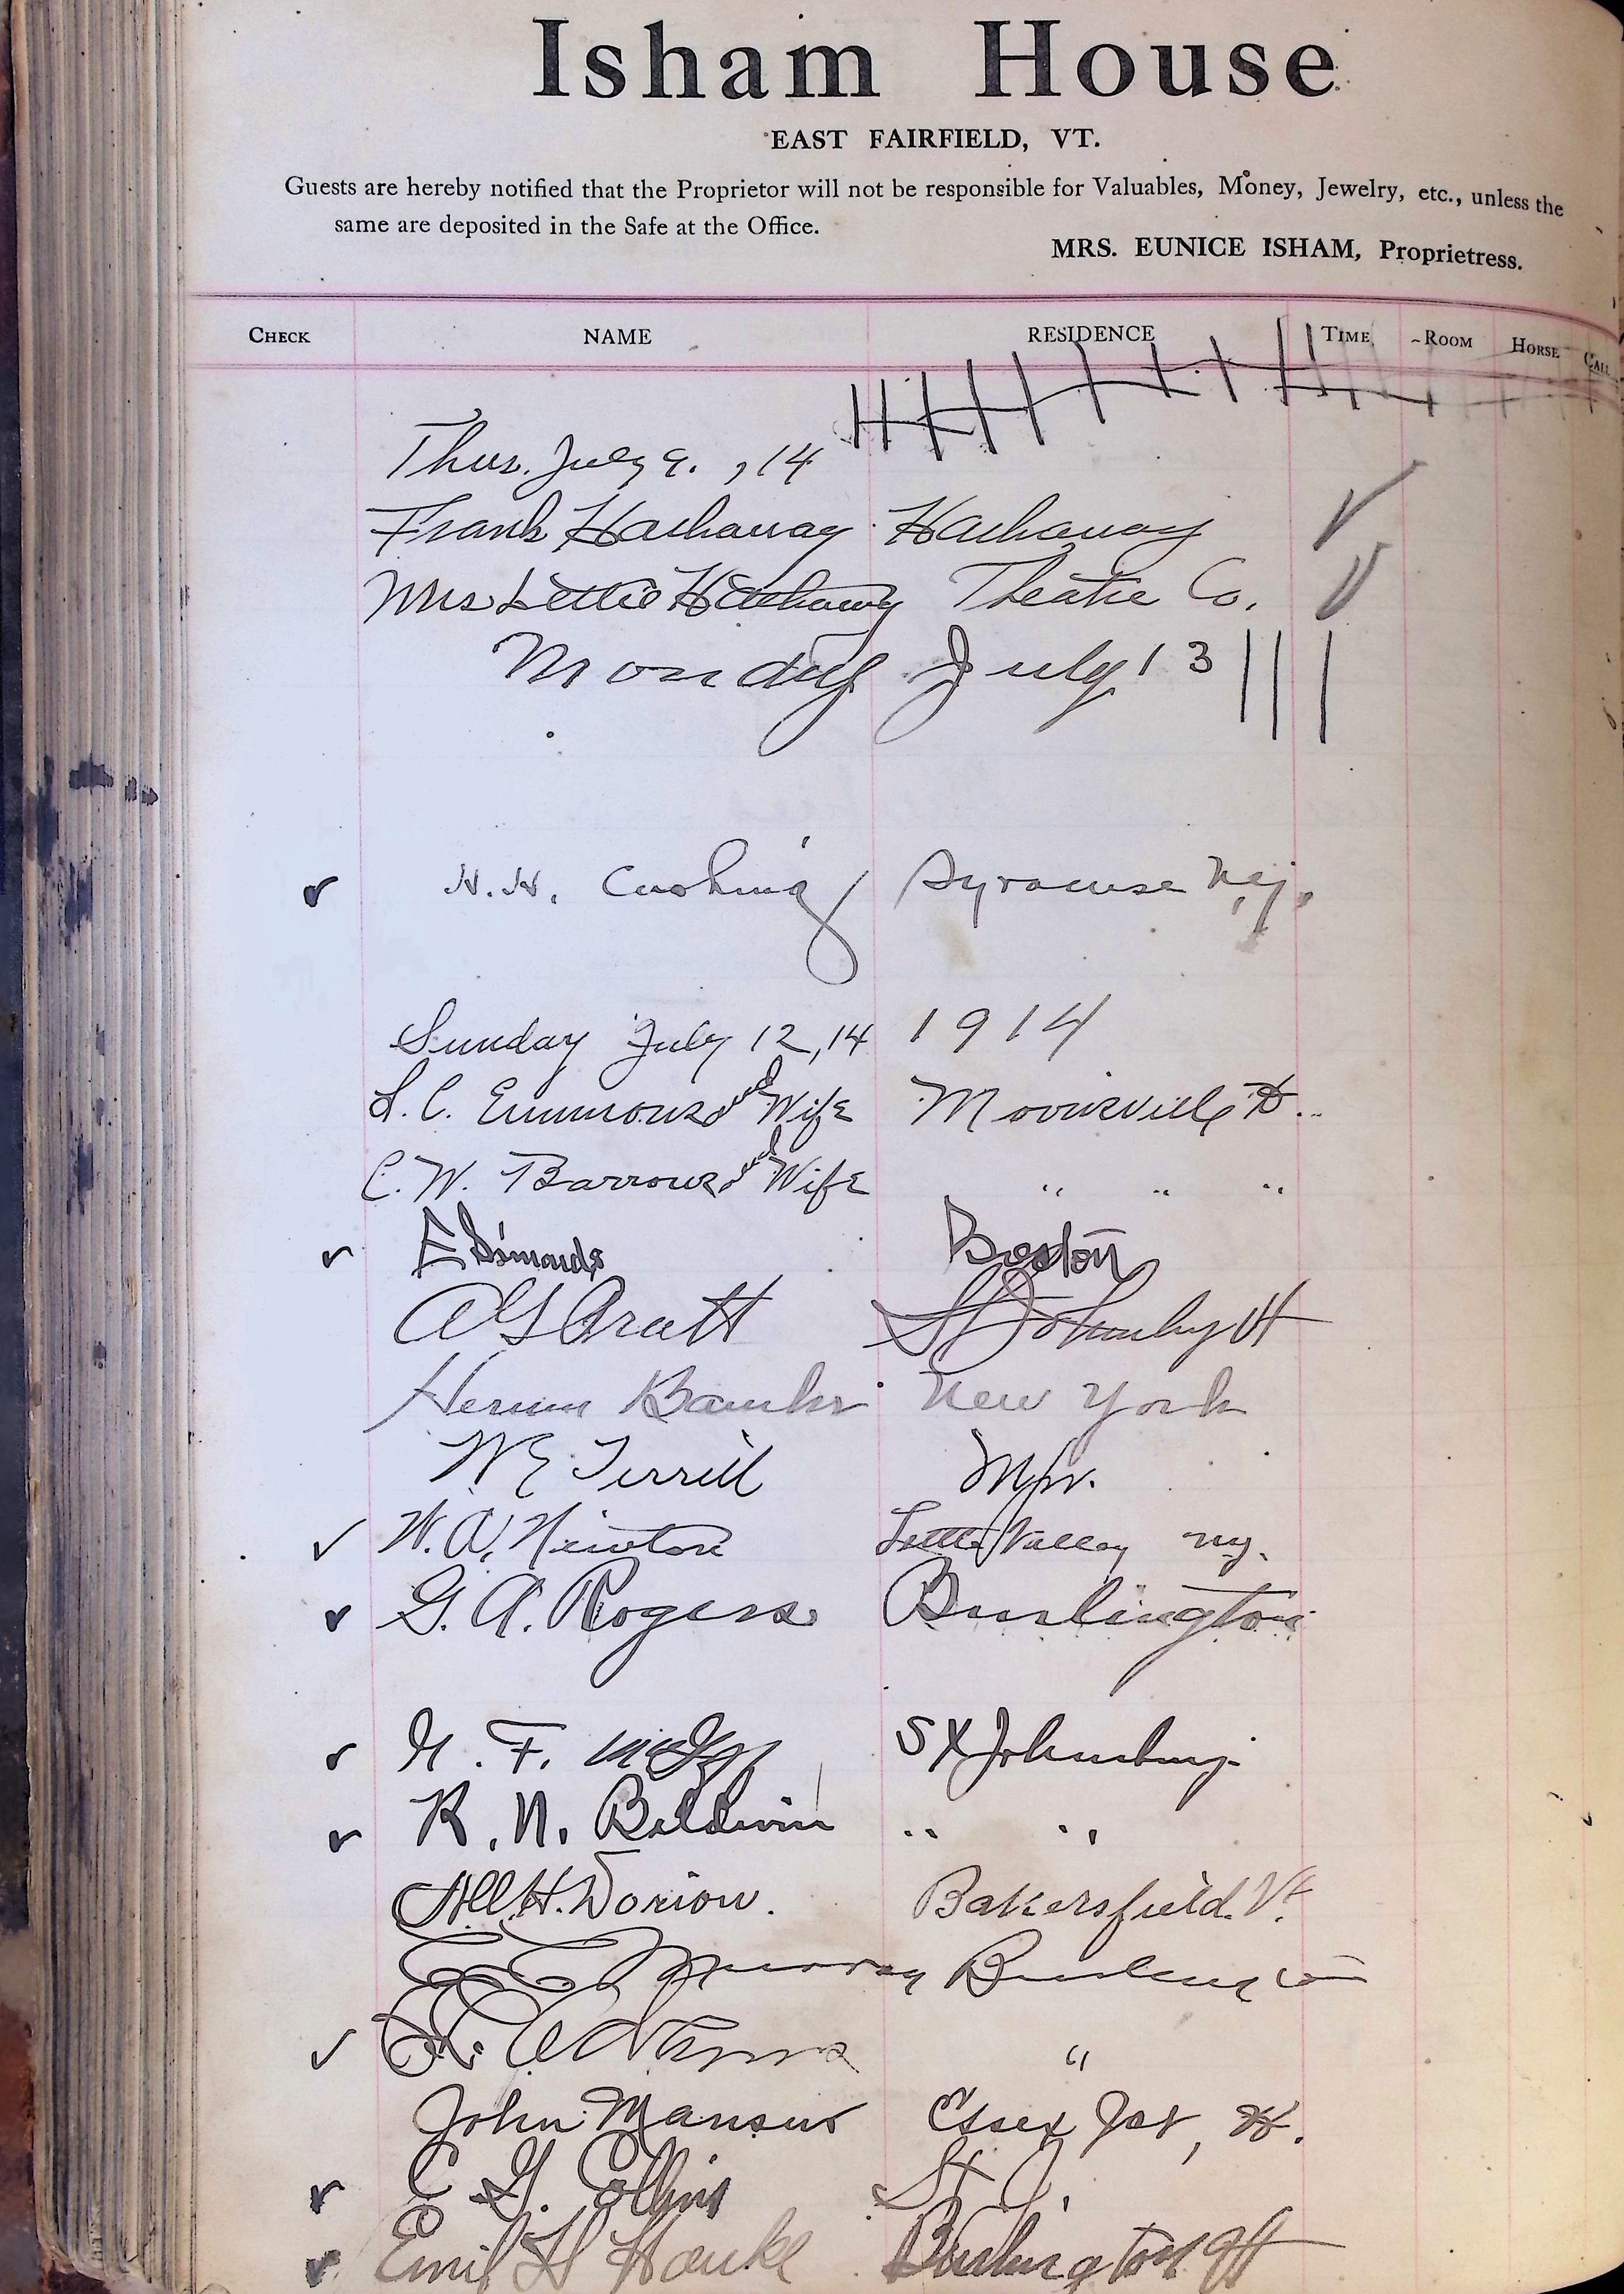 Isham House
EAST FAIRFIELD, VT.
Guests are hereby notified that the Proprietor will not be responsible for Valuables, Money, Jewelry, etc., unless the
same are deposited in the Safe at the Office.
MRS. EUNICE ISHAM, Proprietress.
CHECK NAME RESIDENCE TIME ROOM HORSE CALL
Thur. July 9. , 14
Frank Hathaway Hathaway
Mrs Lettie Hathaway Theatre Co.
Monday July 13
H. H. Cushing Syracuse N.Y.
Sunday July 12, 14 1914
L. C. Emmons and Wife Morrisville Vt.
C. W. Barrows and Wife " " "
E Simonds Boston
A G Pratt St Johnsbury Vt
Herman New York
W E Terrill
W. A. Newton Little Valley N.Y.
G. A. Rogers Burlington
F. St Johnsbury
R. N. Baldwin " "
H. Dorion. Bakersfield. Vt.
Murray Burlington
"
John Mansur Essex Jct, Vt.
C G. Collins St J.
Emil H Hauke Burlington Vt